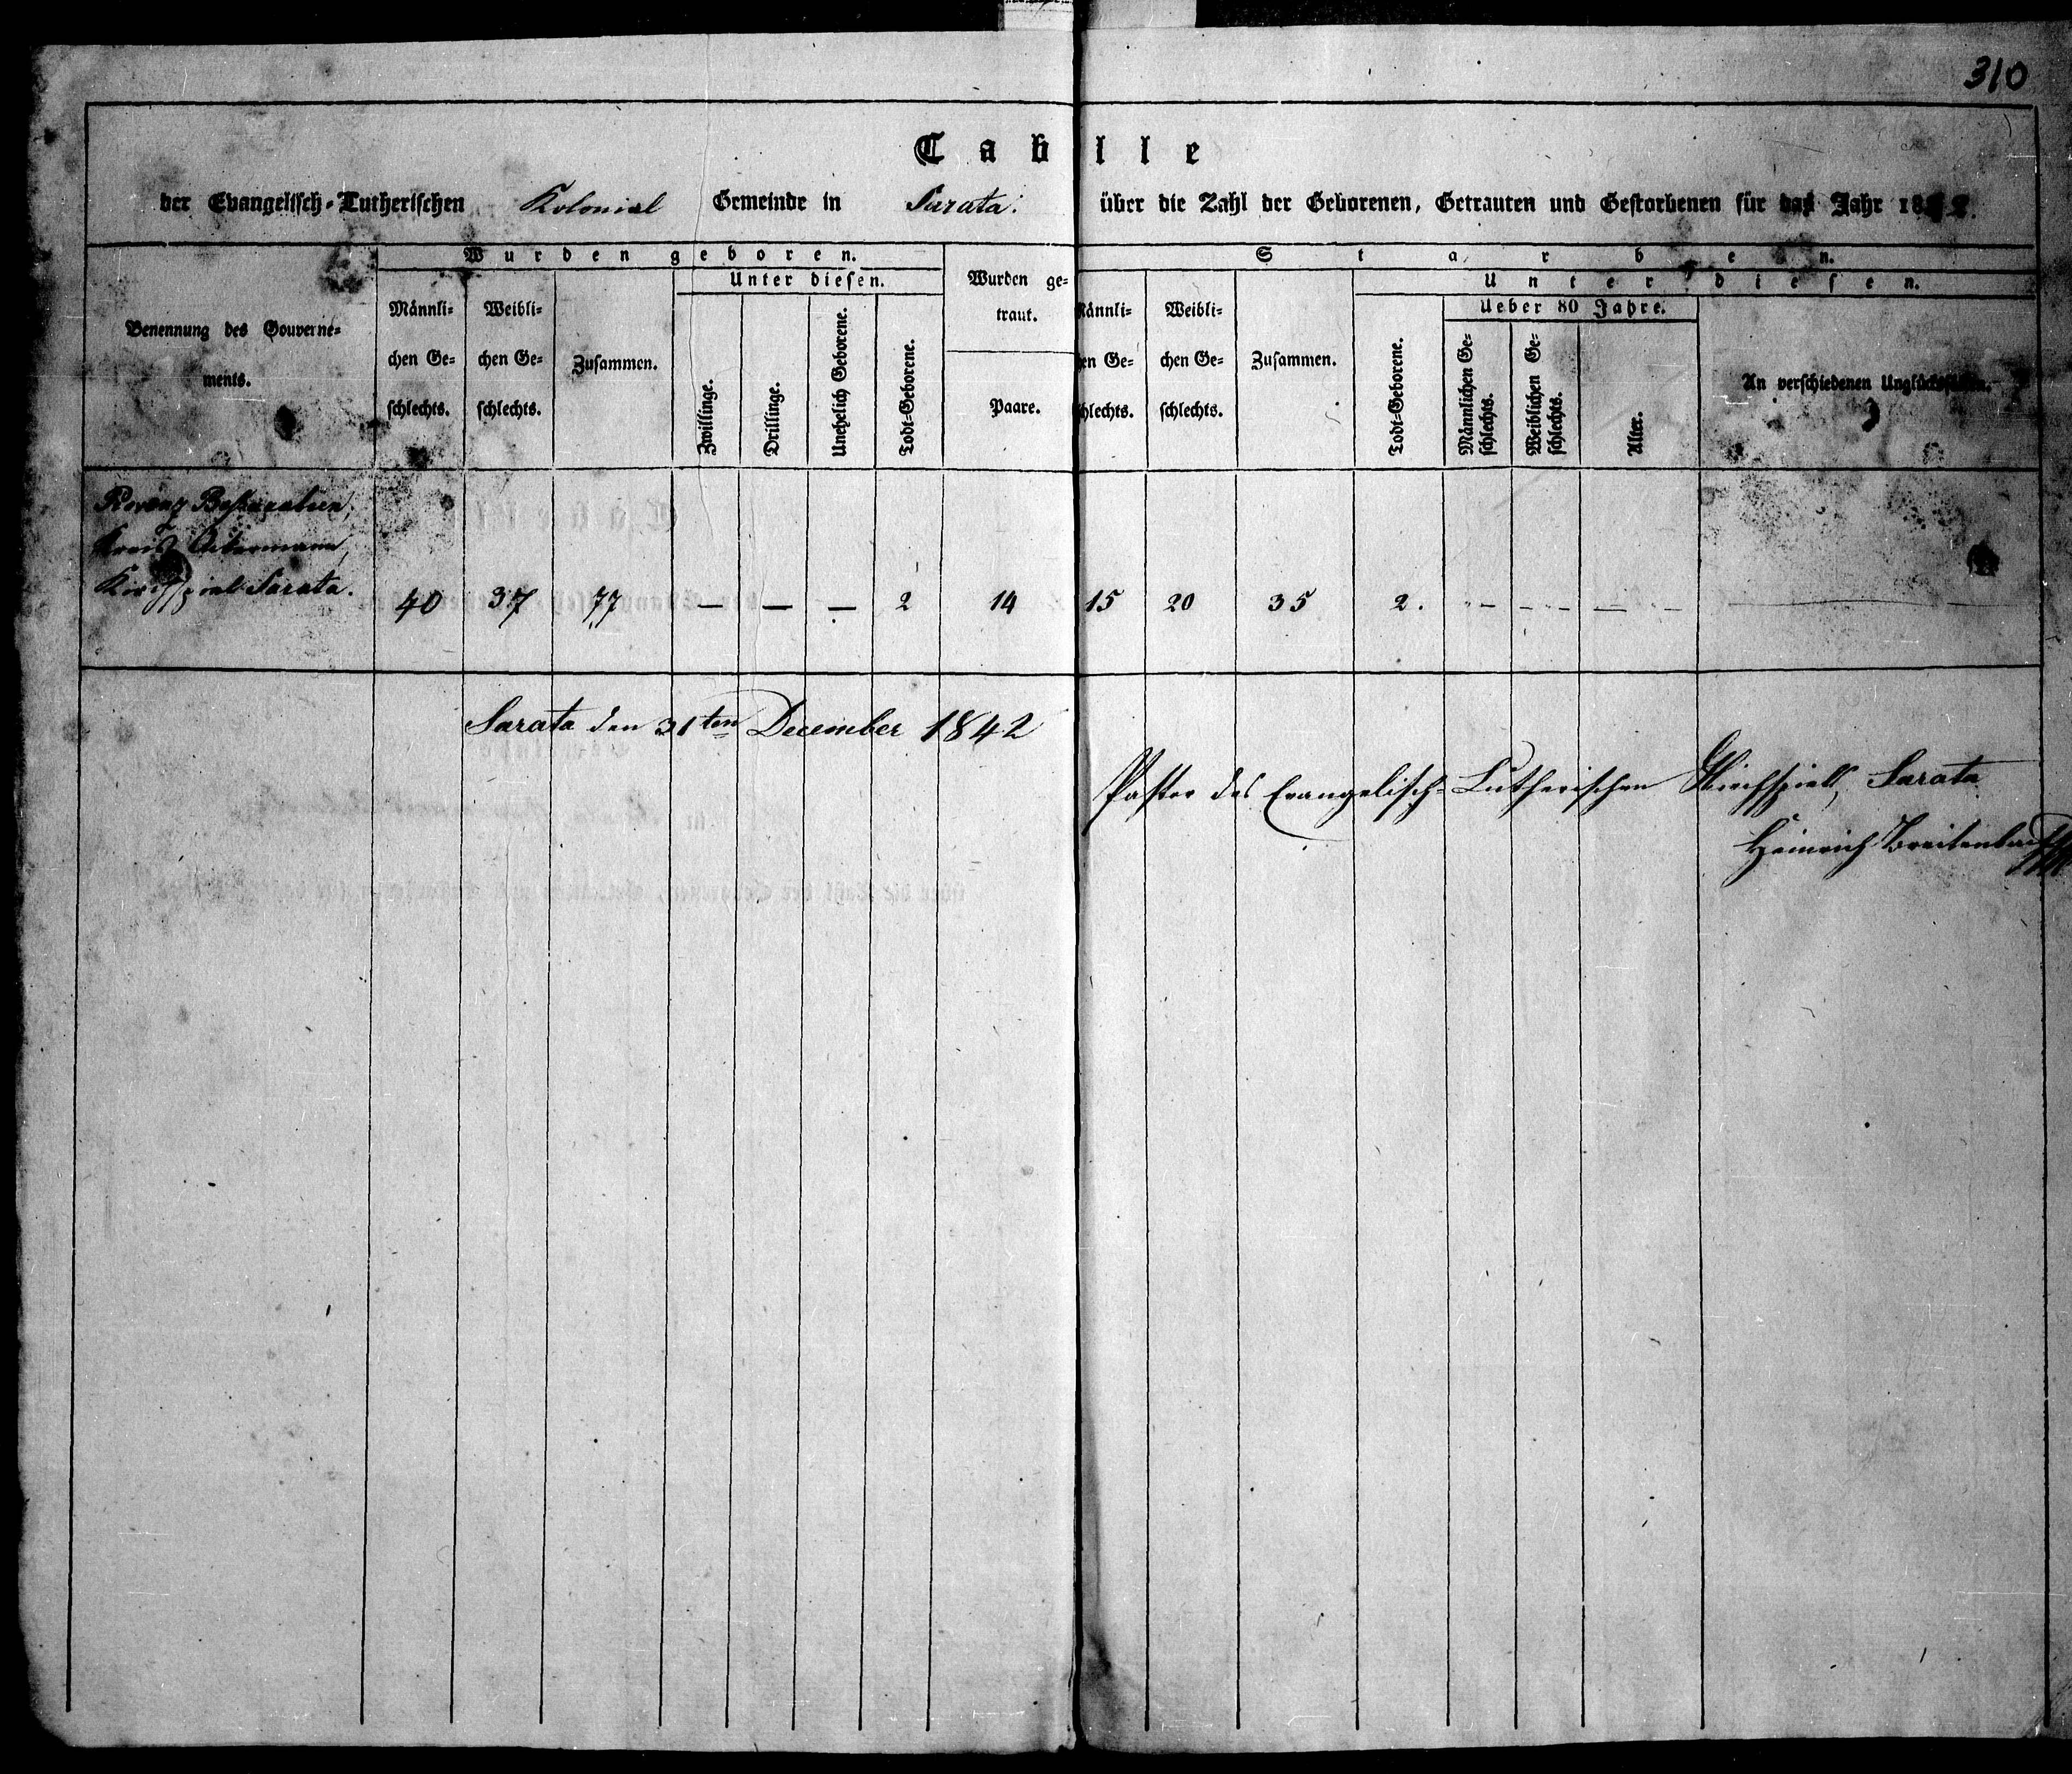 310
Tabelle
der Evangelisch-Lutherischen Kolonial Gemeinde in Sarata. über die Zahl der Geborenen, Getrauten und Gestorbenen für das Jahr 1842.
Benennung des Gouverne-
ments.
Wurden geboren.
Männli-
chen Ge-
schlechts.
Weibli-
chen Ge-
schlechts.
Zusammen.
Unter diesen.
Zwillinge.
Drillinge.
Unehelich Geborene.
Todt-Geborene.
Wurden ge-
traut.
Paare.
Starben.
Männli-
chen Ge-
schlechts.
Weibli-
chen Ge-
schlechts.
Zusammen.
Unter diesen.
Todt-Geborene.
Ueber 80 Jahre.
Männlichen Ge-
schlechts.
Weiblichen Ge-
schlechts.
Alter.
An verschiedenen Unglücksfällen.
Provinz Bessarabien,
Kreis Akermann,
Kirchspiel Sarata.
40 37 77 — — — 2 14 15 20 35 2. -- --- — —
Sarata den 31ten December 1842
Pastor des Evangelisch-Lutherischen Kirchspiels Sarata
Heinrich Breitenbach